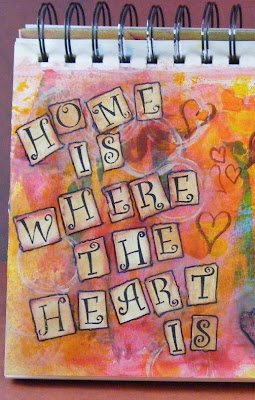 HOME
IS
WHERE
THE
HEART
IS